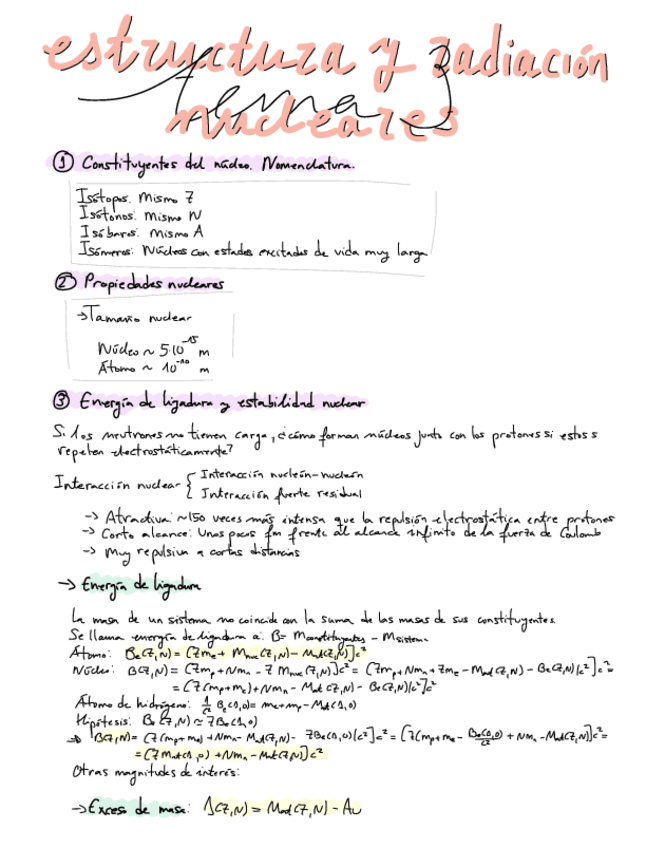 estructura y radiación
Tema 3
nucleares
① Constituyentes del núcleo. Nomenclatura.
Isótopos. Mismo Z
Isótonos: Mismo N
Isóbaros: Mismo A
Isómeros: Núcleos con estados excitados de vida muy larga
② Propiedades nucleares
→Tamaño nuclear
Núcleo ~ 5·10^-15 m
Átomo ~ 10^-10 m
③ Energía de ligadura y estabilidad nuclear
Si los neutrones no tienen carga, ¿cómo forman núcleos junto con los protones si estos s
repelen electrostáticamente?
Interacción nuclear { Interacción nucleón-nucleón
Interacción fuerte residual
-> Atractiva: ~150 veces más intensa que la repulsión electrostática entre protones
-> Corto alcance: Unos pocos fm frente al alcance infinito de la fuerza de Coulomb
-> Muy repulsiva a cortas distancias
-> Energía de ligadura
La masa de un sistema no coincide con la suma de las masas de sus constituyentes.
Se llama energía de ligadura a: B= Mconstituyentes - Msistema
Átomo: Be(Z,N) = [Zme + Mnuc(Z,N) - Mat(Z,N)]c²
Núcleo: B(Z,N) = [Zmp + Nmn - Z Mnuc(Z,N)]c² = [Zmp + Nmn + Zme - Mat(Z,N) - Be(Z,N)/c²]c² =
= [Z(mp+me) + Nmn - Mat(Z,N) - Be(Z,N)/c²]c²
Átomo de hidrógeno: 1/c² Be(1,0) = me+mp - Mat(1,0)
Hipótesis: Be(Z,N) ≃ ZBe(1,0)
=> B(Z,N) = [Z(mp+me) + Nmn - Mat(Z,N) - ZBe(1,0)/c²]c² = [Z(mp+me - Be(1,0)/c²) + Nmn - Mat(Z,N)]c² =
= [Z Mat(1,0) + Nmn - Mat(Z,N)]c²
Otras magnitudes de interés:
-> Exceso de masa: Δ(Z,N) = Mat(Z,N) - Au